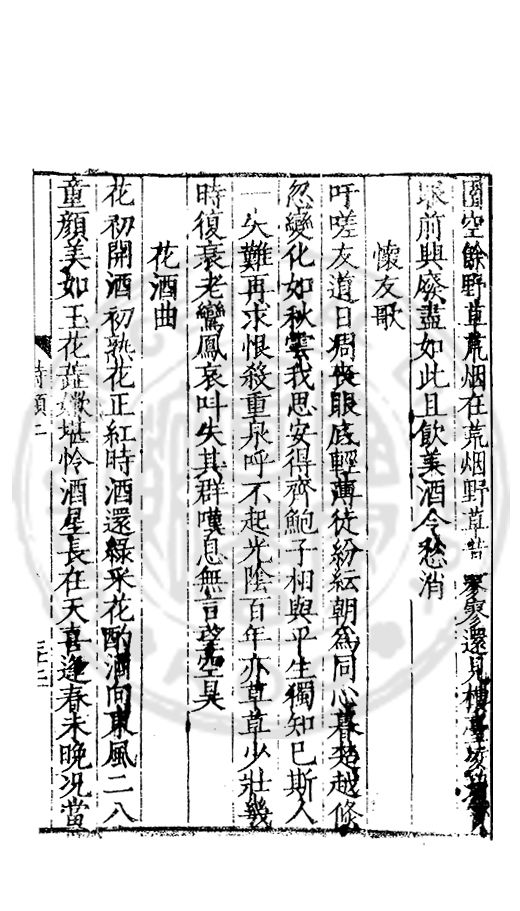 園空餘野草荒烟在荒烟野草昔寥寥還見樓臺凌
眼前興廢盡如此且飲美酒令愁消
懷友歌
吁嗟友道日凋喪眼底輕薄徒紛紜朝為同心暮楚越倏
忽變化如秋雲我思安得齊鮑子相與平生獨知己斯人
一失難再求恨殺重泉呼不起光陰百年亦草草少壯幾
時復衰老鸞鳳哀叫失其群嘆息無言望空昊
花酒曲
花初開酒初熟花正紅時酒還綠采花酌酒向東風二八
童顏美如玉花蕋嫩堪怜酒星長在天喜逢春未晚况當
詩類二